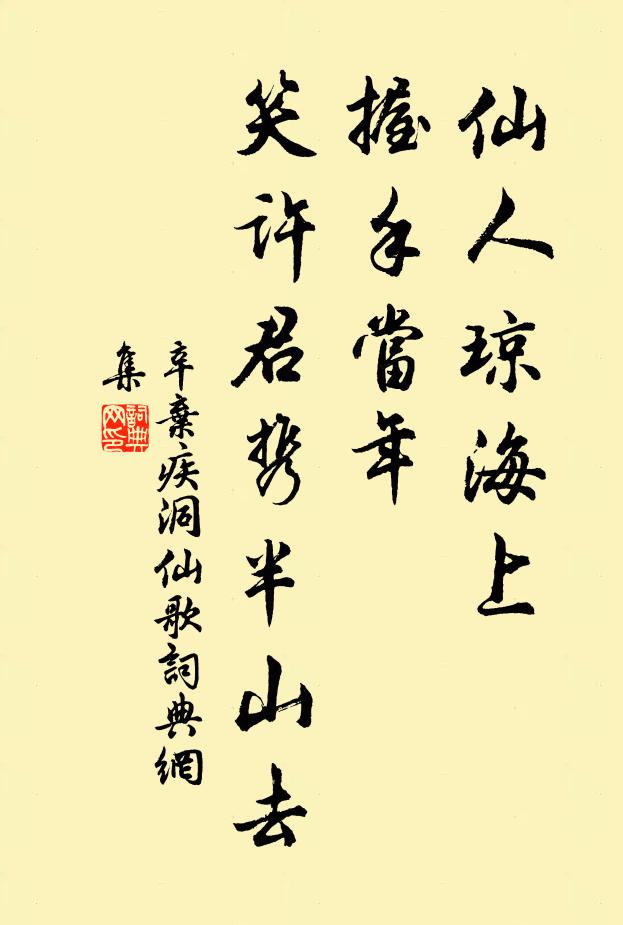 仙人琼海上
握手當年
笑许君携半山去
辛棄疾洞仙歌詞典網
集
詞典网印